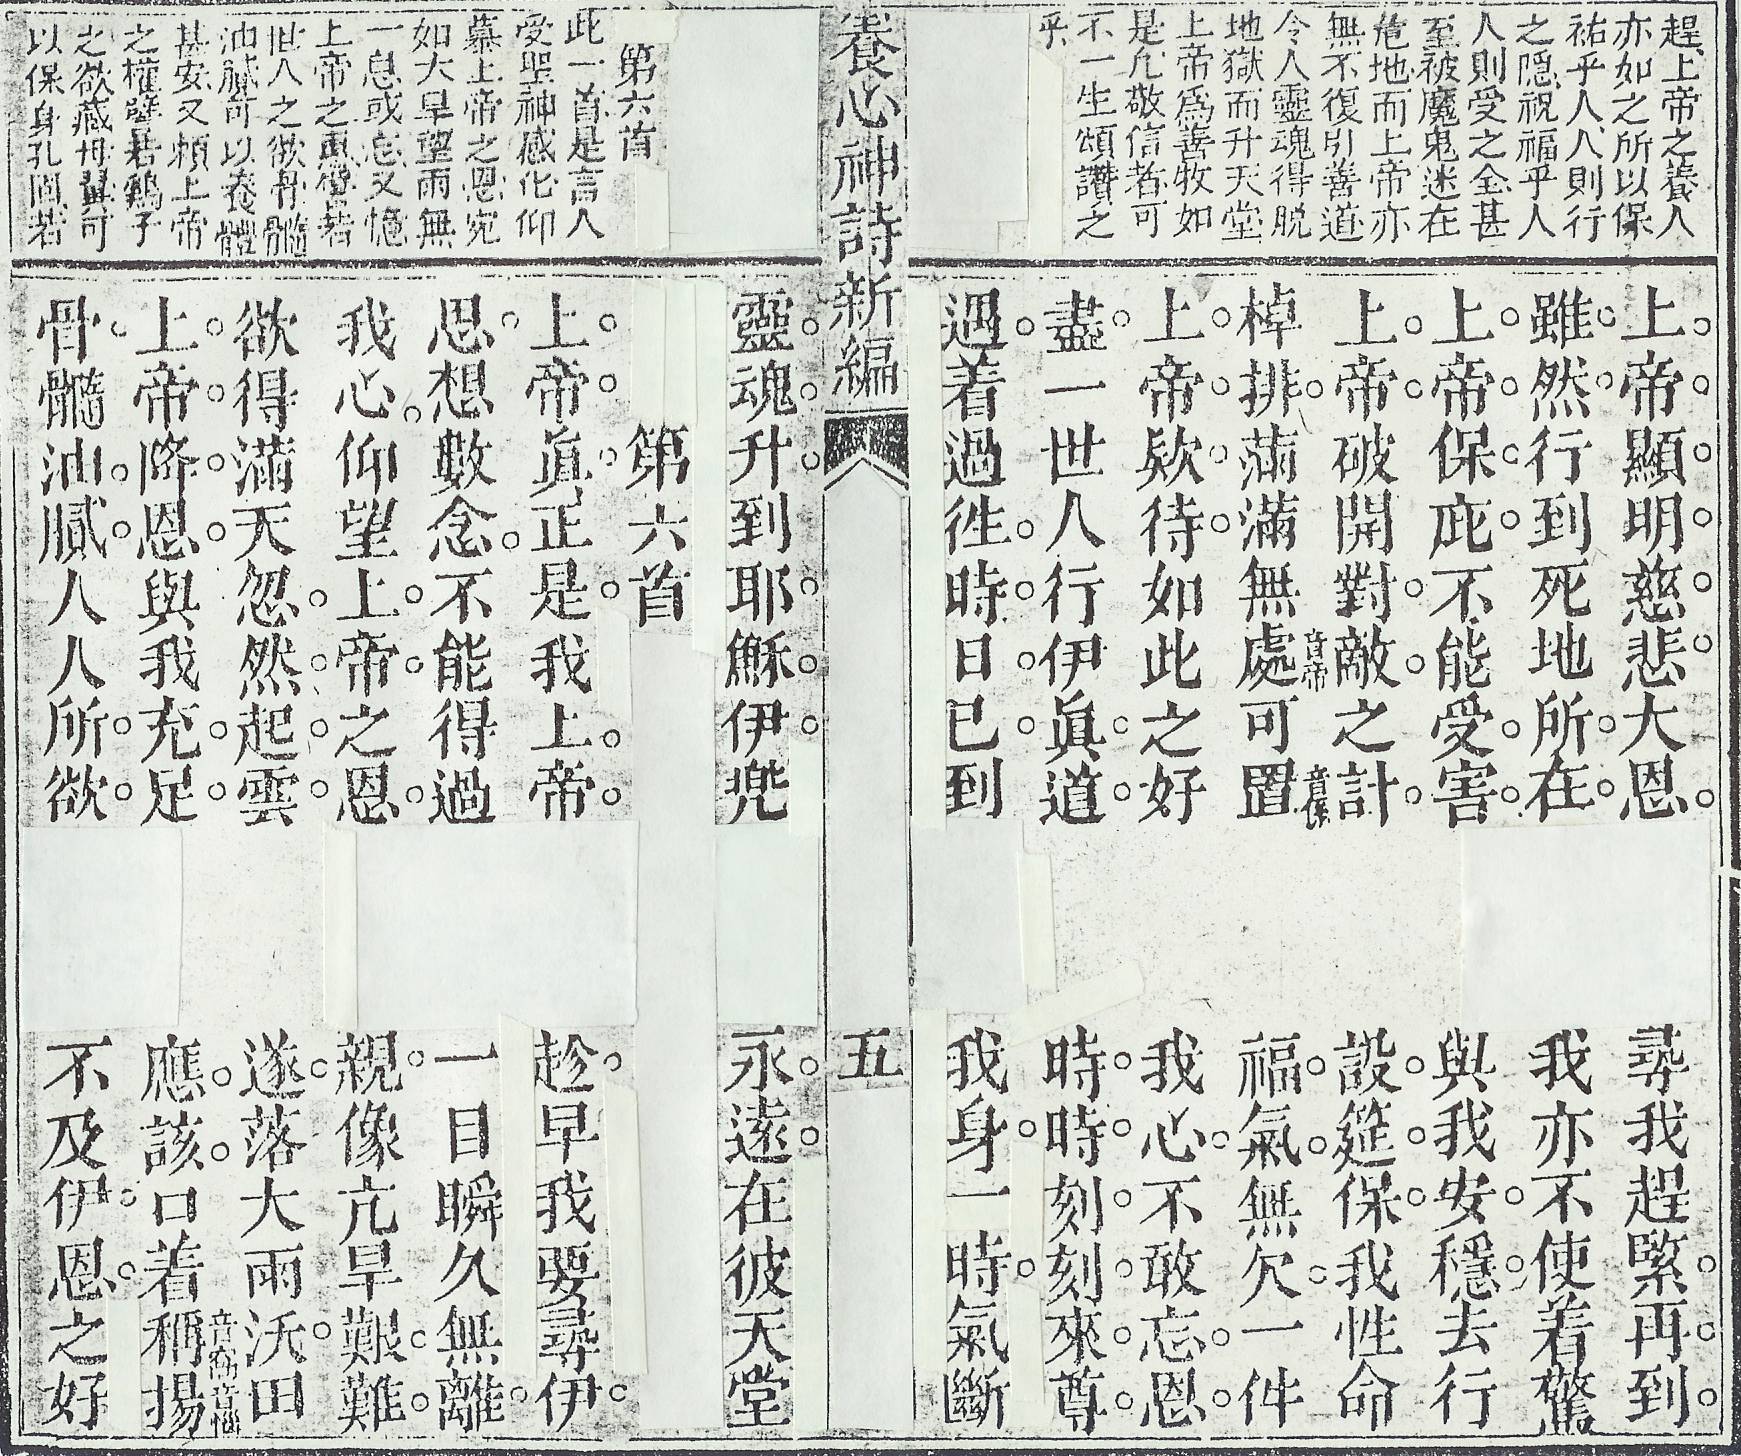 趕上帝之養人
亦如之所以保
祐乎人人則行
之隱祝福乎人
人則受之全甚
至被魔鬼迷在
危地而上帝亦
無不復引善道
令人靈魂得脱
地獄而升天堂
上帝爲善牧如
是凢敬信者可
不一生頌讚之
乎
上帝顯明慈悲大恩
尋我趕緊再到
雖然行到死地所在
我亦不使着驚
上帝保庇不能受害
與我安穩去行
上帝破開對敵之計
設筵保我性命
棹排滿滿無處可置
福氣無欠一件
上帝欵待如此之好
我心不敢忘恩
盡一世人行伊眞道
時時刻刻來尊
遇着過徃時日已到
我身一時氣斷
養心神詩新編
五
靈魂升到耶穌伊兜
永遠在彼天堂
第六首
此一首是言人
受聖神感化仰
慕上帝之恩宛
如大旱望雨無
一息或忘又憶
上帝之惠愛若
世人之欲骨髓
油膩可以養體
甚安又頼上帝
之權譬若鷄子
之欲藏母翼可
以保身孔固若
第六首
上帝眞正是我上帝
趁早我要尋伊
思想數念不能得過
一目瞬久無離
我心仰望上帝之恩
親像亢旱艱難
欲得滿天忽然起雲
遂落大雨沃田
上帝降恩與我充足
應該口着稱揚
骨髓油膩人人所欲
不及伊恩之好